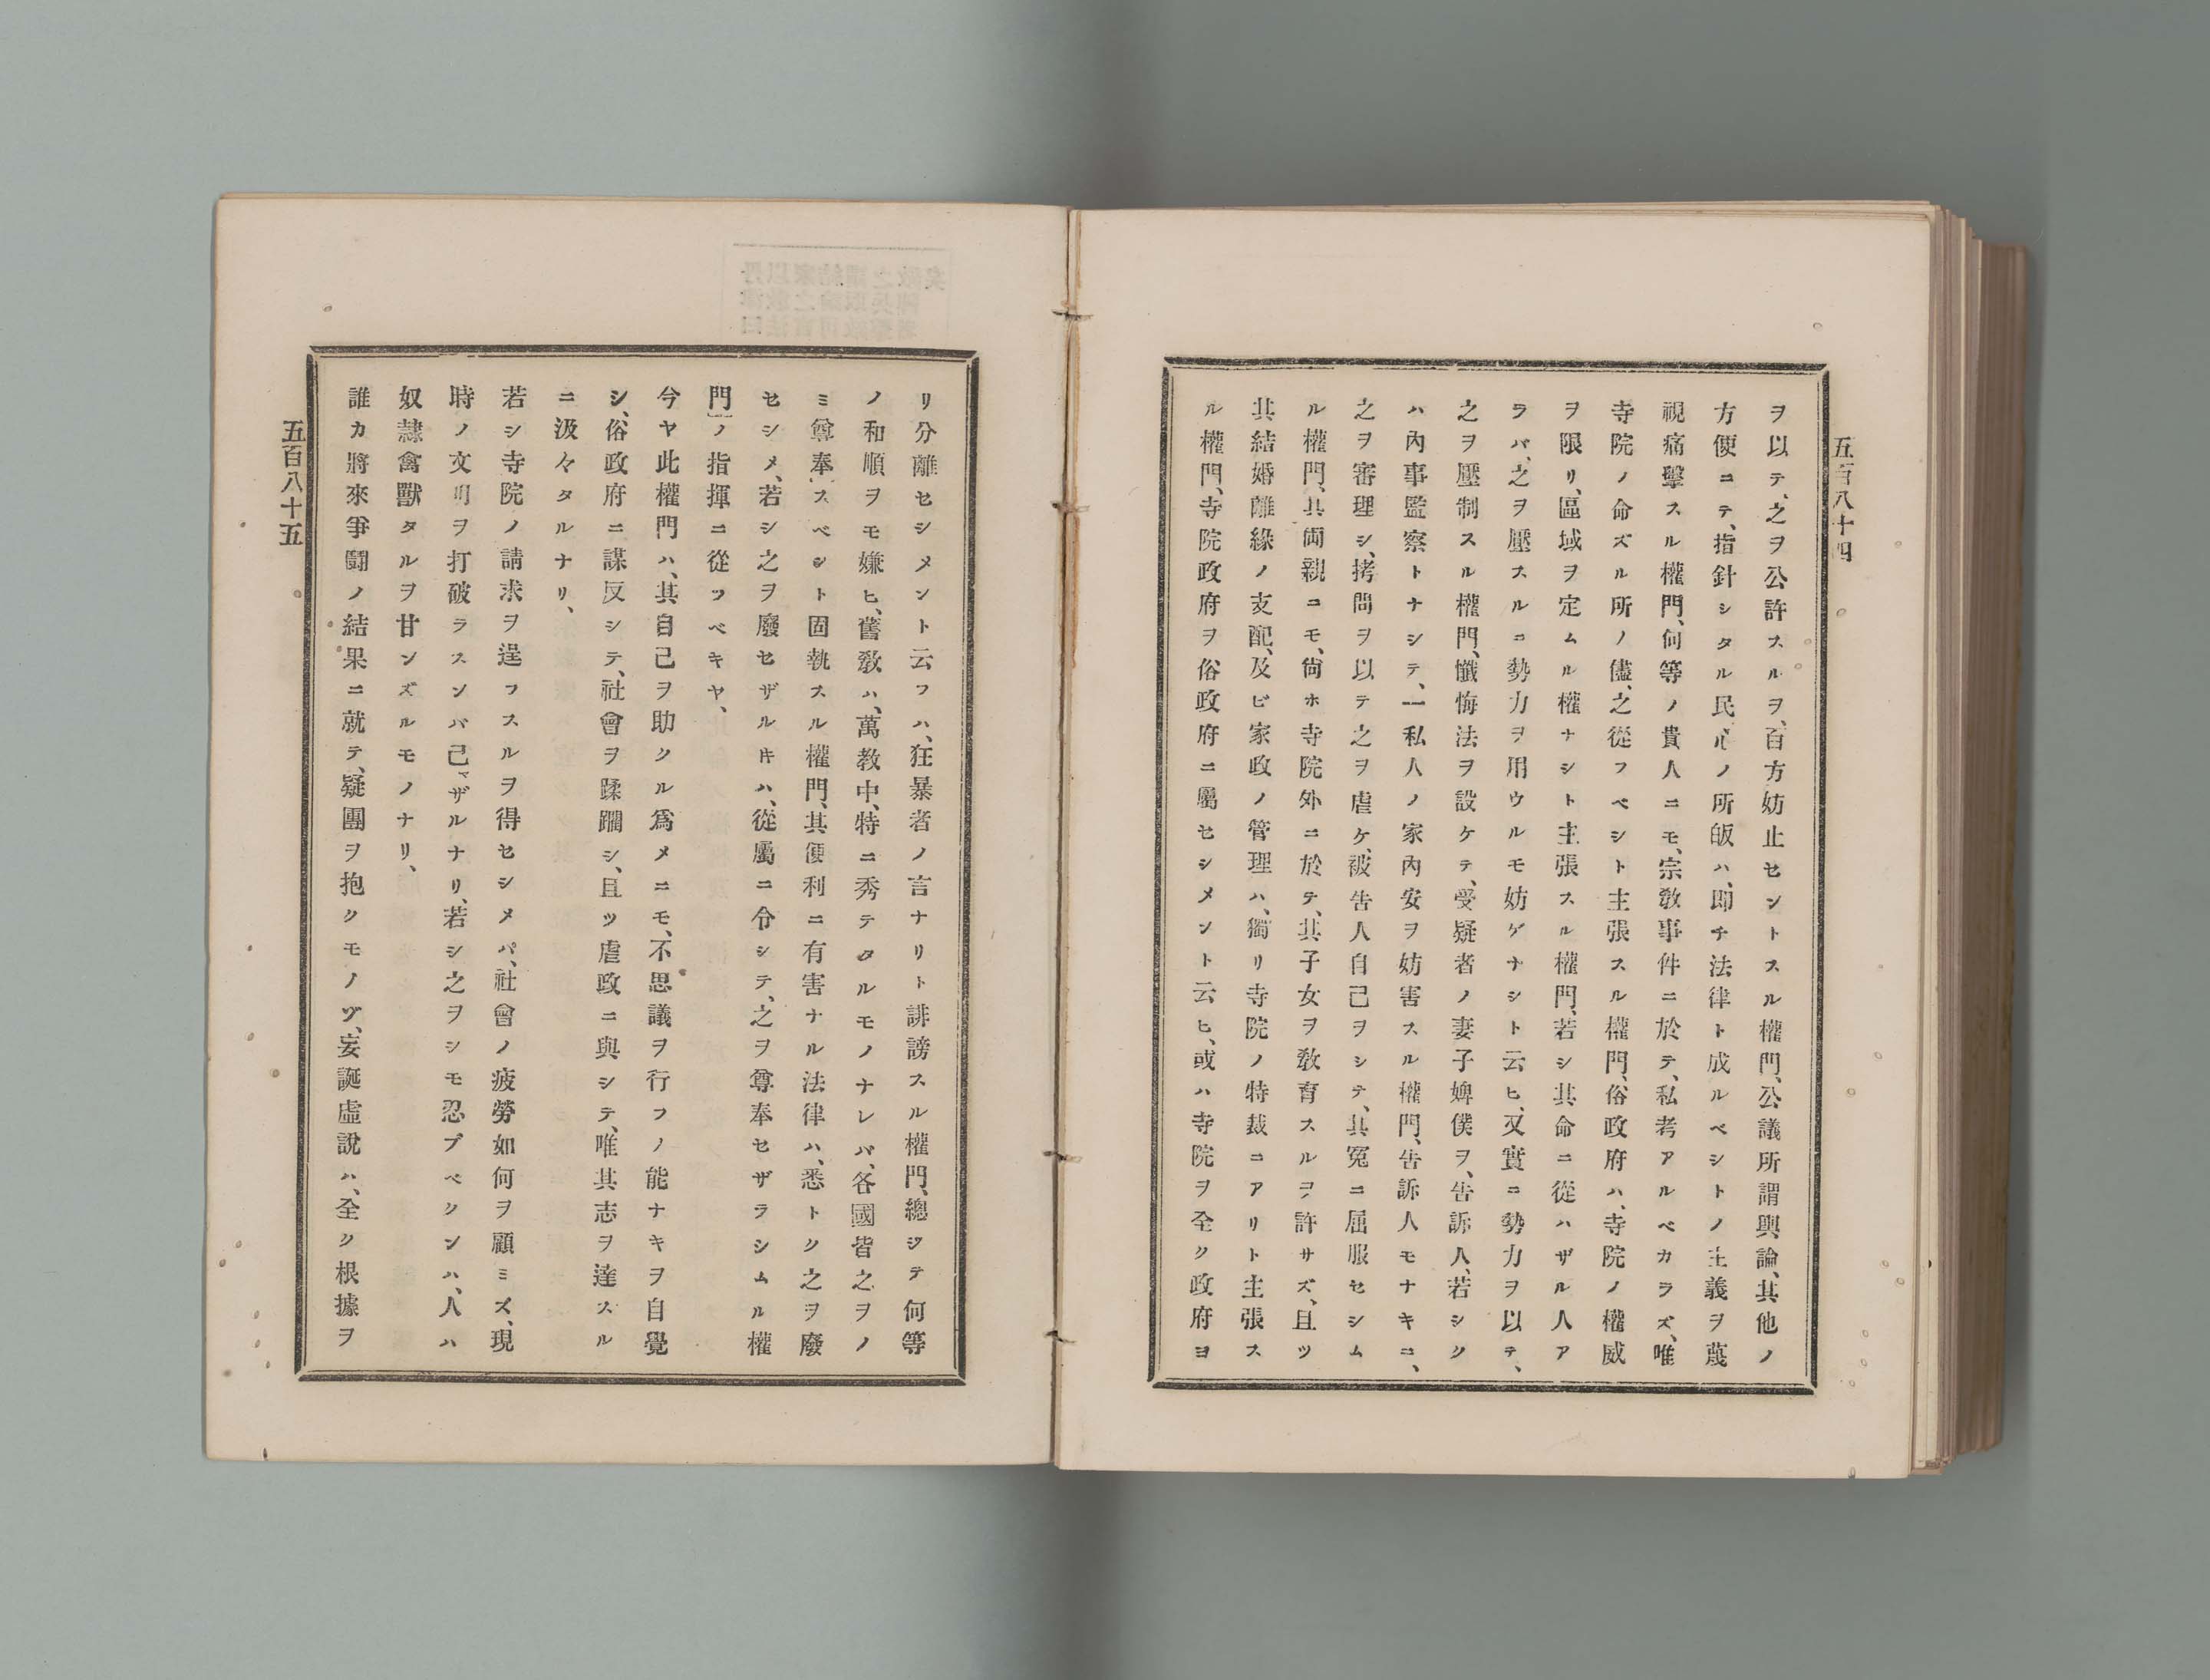 五百八十四
ヲ以テ、之ヲ公許スルヲ、百方妨止セントスル權門、公議所謂輿論、其他ノ
方便ニテ、指針シタル民心ノ所皈ハ、即チ法律ト成ルベシトノ主義ヲ蔑
視痛擊スル權門、何等ノ貴人ニモ、宗敎事件ニ於テ、私考アルベカラズ、唯
寺院ノ命ズル所ノ儘、之從フベシト主張スル權門、俗政府ハ、寺院ノ權威
ヲ限リ、區域ヲ定ムル權ナシト主張スル權門、若シ其命ニ從ハザル人ア
ラバ、之ヲ壓スルニ勢力ヲ用ウルモ妨ゲナシト云ヒ、又實ニ勢力ヲ以テ、
之ヲ壓制スル權門、懺悔法ヲ設ケテ、受疑者ノ妻子婢僕ヲ、告訴人、若シク
ハ內事監察トナシテ、一私人ノ家內安ヲ妨害スル權門、告訴人モナキニ、
之ヲ審理シ、拷問ヲ以テ之ヲ虐ケ、被告人自己ヲシテ、其冤ニ屈服セシム
ル權門、其両親ニモ、尙ホ寺院外ニ於テ、其子女ヲ敎育スルヲ許サズ、且ツ
其結婚離緣ノ支配、及ビ家政ノ管理ハ、獨リ寺院ノ特裁ニアリト主張ス
ル權門、寺院政府ヲ俗政府ニ屬セシメント云ヒ、或ハ寺院ヲ全ク政府ヨ
リ分離セシメント云フハ、狂暴者ノ言ナリト誹謗スル權門、總ジテ何等
ノ和順ヲモ嫌ヒ、舊敎ハ、萬敎中、特ニ秀テタルモノナレバ、各國皆之ヲノ
ミ尊奉スベシト固執スル權門、其便利ニ有害ナル法律ハ、悉トク之ヲ廢
セシメ、若シ之ヲ廢セザルキハ、從屬ニ令シテ、之ヲ尊奉セザラシムル權
門」ノ指揮ニ從ツベキヤ、
今ヤ此權門ハ、其自己ヲ助クル爲メニモ、不思議ヲ行フノ能ナキヲ自覺
シ、俗政府ニ謀反シテ、社會ヲ蹂躙シ、且ツ虐政ニ與シテ、唯其志ヲ達スル
ニ汲々タルナリ、
若シ寺院ノ請求ヲ逞フスルヲ得セシメバ、社會ノ疲勞如何ヲ顧ミズ、現
時ノ文明ヲ打破ラスンバ己マザルナリ、若シ之ヲシモ忍ブベクンハ、人ハ
奴隷禽獸タルヲ甘ンズルモノナリ、
誰カ將來爭鬪ノ結果ニ就テ、疑團ヲ抱クモノゾ、妄誕虛說ハ、全ク根據ヲ
五百八十五